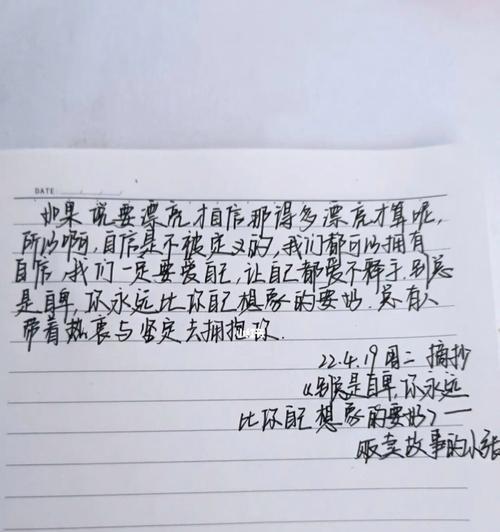 DATE
如果说要漂亮才自信那得多漂亮才算呢,
所以啊,自信是不被定义的,我们都可以拥有
自信,我们一定要爱自己,让自己都爱不释手,别总
是自卑,你永远比你自己想象的要好.总有人
带着热衷与坚定去拥抱你.
22.4.19 周二 摘抄
《别总是自卑,你永远
比你自己想象的要好》一
贩卖故事的小张